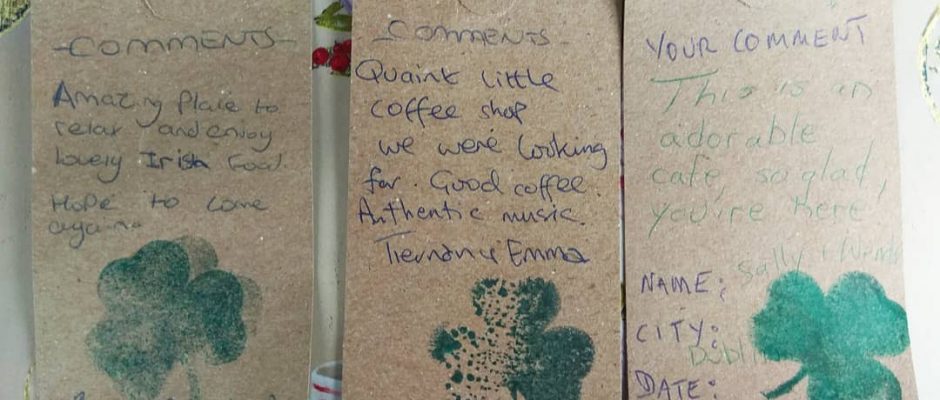 - COMMENTS -
Amazing Place to
relax and enjoy
lovely Irish Food
Hope to come
again
- COMMENTS -
Quaint little
coffee shop
we were looking
for. Good coffee.
Authentic music.
Tiernan & Emma
YOUR COMMENT
This is an
adorable
cafe, so glad,
you're here
Sally &
NAME:
CITY:
Dubli
DATE: